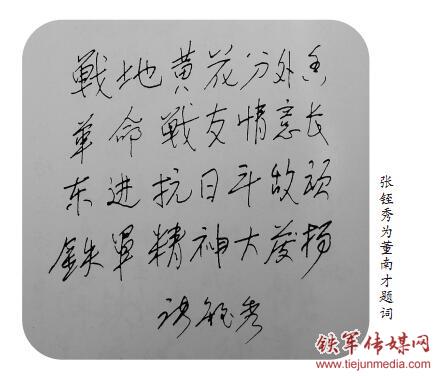 戦地黄花分外香
革命戦友情意长
东进抗日斗敌顽
鉄軍精神大发扬
张铚秀
张铚秀为董南才题词
铁军传媒网
www.tiejunmedia.com